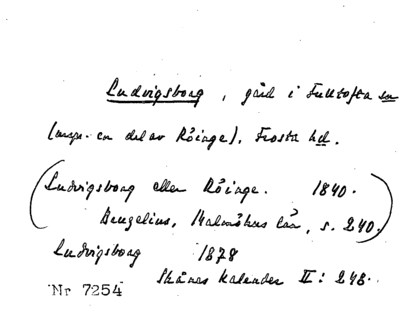 Ludvigsborg, gård i Fulltofta sn
(urspr. en del av Röinge). Frosta hd.
(Ludvigsborg eller Röinge. 1840.
Bengelius, Malmöhus län, s. 240.)
Ludvigsborg 1878
Skånes kalender II: 248.
Nr 7254